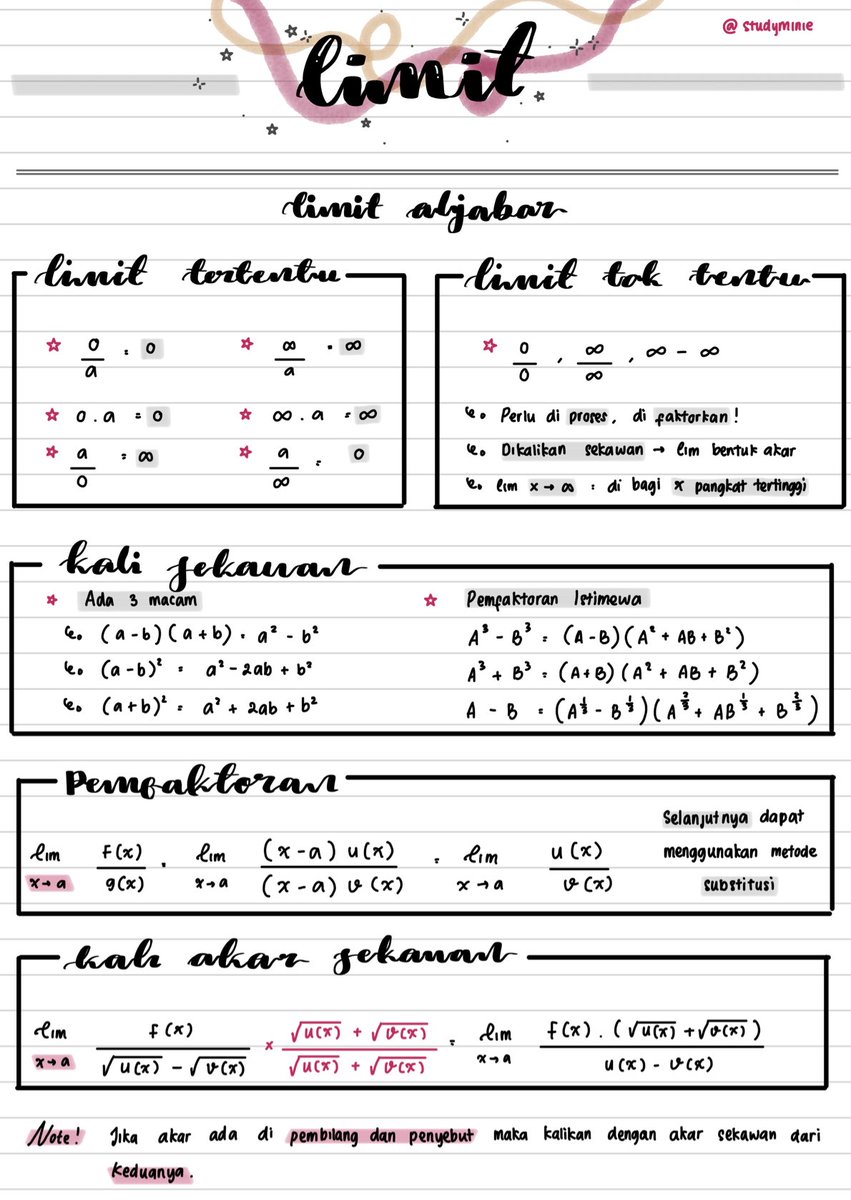 @ studyminie
limit
limit aljabar
limit tertentu
☆ 0/a = 0
☆ ∞/a = ∞
☆ 0 . a = 0
☆ ∞ . a = ∞
☆ a/0 = ∞
☆ a/∞ = 0
limit tak tentu
☆ 0/0 , ∞/∞ , ∞ - ∞
Perlu di proses, di faktorkan!
Dikalikan sekawan → lim bentuk akar
lim x→∞ = di bagi x pangkat tertinggi
kali sekawan
☆ Ada 3 macam
(a-b)(a+b) = a² - b²
(a-b)² = a² - 2ab + b²
(a+b)² = a² + 2ab + b²
☆ Pemfaktoran Istimewa
A³ - B³ = (A-B)(A² + AB + B²)
A³ + B³ = (A+B)(A² + AB + B²)
A - B = (A^⅓ - B^⅓)(A^⅔ + AB^⅓ + B^⅔)
Pemfaktoran
lim x→a f(x)/g(x) = lim x→a (x-a) u(x)/(x-a) v(x) = lim x→a u(x)/v(x)
Selanjutnya dapat
menggunakan metode
substitusi
kali akar sekawan
lim x→a f(x)/(√u(x) - √v(x)) × (√u(x) + √v(x))/(√u(x) + √v(x)) = lim x→a f(x) . (√u(x) + √v(x))/(u(x) - v(x))
Note! Jika akar ada di pembilang dan penyebut maka kalikan dengan akar sekawan dari
keduanya.